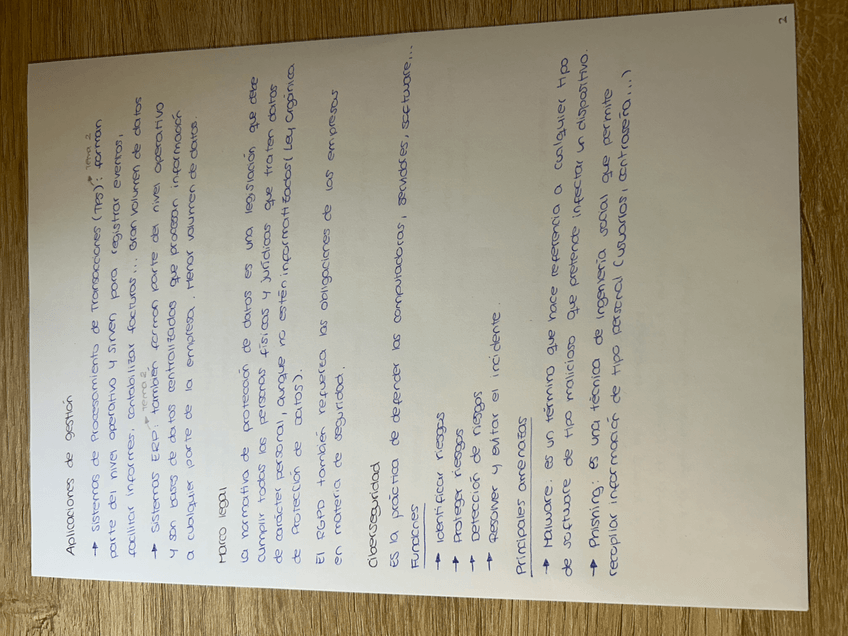 Aplicaciones de gestión
→ Sistemas de Procesamiento de Transacciones (TPS): forman → Tema 2
parte del nivel operativo y sirven para registrar eventos,
facilitar informes, contabilizar facturas... Gran volumen de datos
→ Sistemas ERP: también forman parte del nivel operativo → Tema 2
y son bases de datos centralizadas que procesan información
a cualquier parte de la empresa. Menor volumen de datos.
Marco legal
La normativa de protección de datos es una legislación que debe
cumplir todas las personas físicas y jurídicas que traten datos
de carácter personal, aunque no estén informatizados (Ley Orgánica
de Protección de Datos).
El RGPD también refuerza las obligaciones de las empresas
en materia de seguridad.
Ciberseguridad
Es la práctica de defender las computadoras, servidores, software...
Funciones
→ Identificar riesgos
→ Proteger riesgos
→ Detección de riesgos
→ Resolver y evitar el incidente.
Principales amenazas
→ Malware: es un término que hace referencia a cualquier tipo
de software de tipo malicioso que pretende infectar un dispositivo.
→ Phishing: es una técnica de ingeniería social que permite
recopilar información de tipo personal (usuarios, contraseña,...)
2